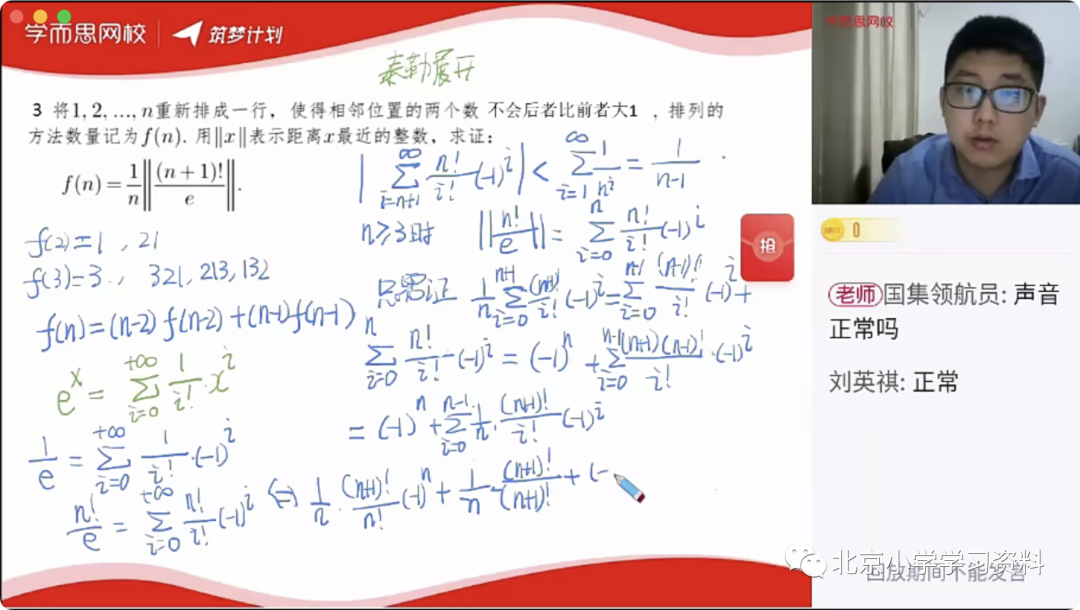 学而思网校 筑梦计划
学而思网校
泰勒展开
3 将1, 2, ..., n重新排成一行，使得相邻位置的两个数 不会后者比前者大1 ，排列的
方法数量记为f(n). 用∥x∥表示距离x最近的整数，求证：
f(n) = 1/n ∥(n+1)!/e∥.
f(2)=1 , 21
f(3)=3 , 321, 213, 132
f(n)=(n-2)f(n-2)+(n-1)f(n-1)
e^x = ∑_{i=0}^{+∞} 1/i! · x^i
1/e = ∑_{i=0}^{+∞} 1/i! · (-1)^i
n!/e = ∑_{i=0}^{+∞} n!/i! (-1)^i
|∑_{i=n+1}^{∞} n!/i! (-1)^i| < ∑_{i=1}^{∞} 1/n^i = 1/(n-1)
n≥3时 ∥n!/e∥ = ∑_{i=0}^{n} n!/i! (-1)^i
只需证 1/n ∑_{i=0}^{n+1} (n+1)!/i! (-1)^i = ∑_{i=0}^{n-1} (n-1)!/i! (-1)^i +
∑_{i=0}^{n} n!/i! · (-1)^i = (-1)^n + ∑_{i=0}^{n-1} (n+1)(n-1)!/i! · (-1)^i
= (-1)^n + ∑_{i=0}^{n-1} 1/n · (n+1)!/i! (-1)^i
⇔ 1/n · (n+1)!/n! (-1)^n + 1/n · (n+1)!/(n+1)! + (-
抢
0
老师 国集领航员: 声音
正常吗
刘英祺: 正常
北京小学学习资料
回放期间不能发言